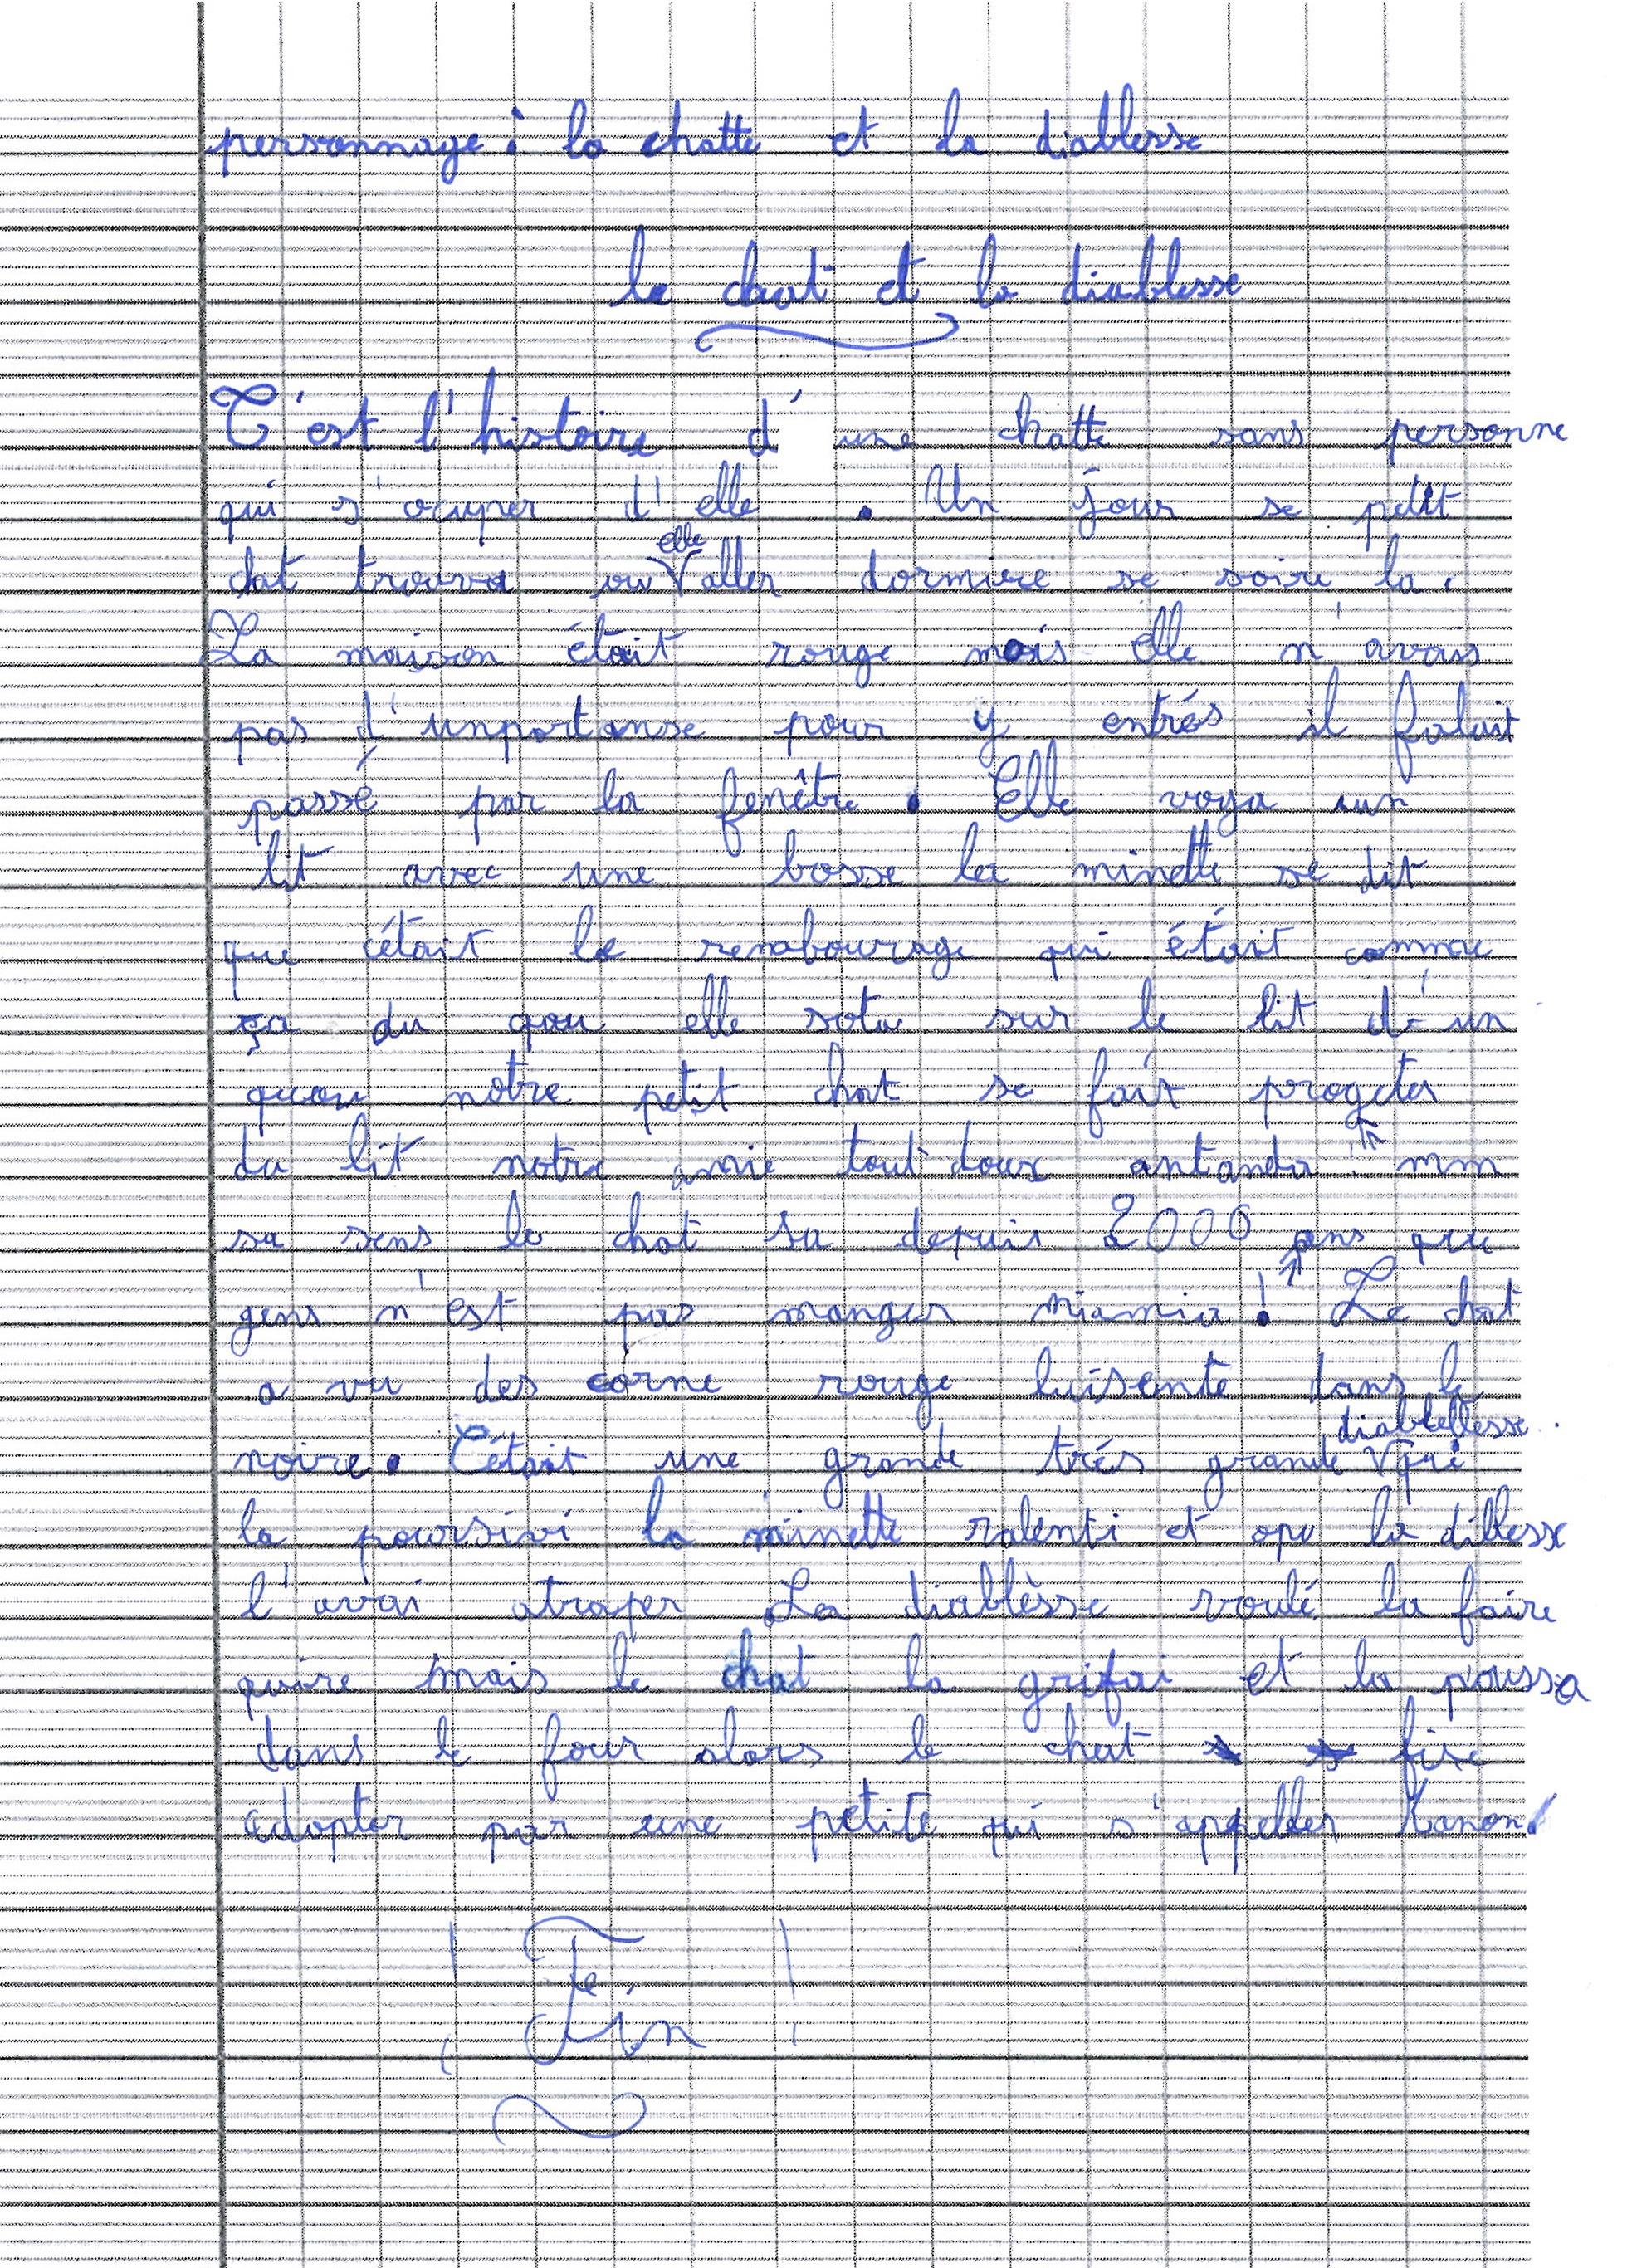 personnage : la chatte et la diablesse
le chat et la diablesse
C'est l'histoire d' une chatte sans personne
qui s'ocuper d'elle . Un jour se petit
chat trouva ou elle aller dormire se soire la.
La maison était rouge mais elle n'avais
pas d'unportanse pour y entrés il falait
passé par la fenêtre . Elle voya un
lit avec une bosse la minette se dit
que c'était le rembourage qui était comme
ça du qou elle sota sur le lit d'un
quou notre petit chat se fait progeter
du lit notre amie tout doux antandi " mm
sa sens le chat sa depuis 2000 ans que
gens n'est pas manger miamia ! " Le chat
a vu des corne rouge luisente dans le
noire. C'était une grande trés grande diabtellesse qui
la poursivi la minette ralenti et opu la dillesse
l'avai atraper . La diablèsse voulé la faire
quire mais le chat la grifai et la poussa
dans le four alors le chat fise
adopter par une petite qui s'appeller Manon.
! Fin !